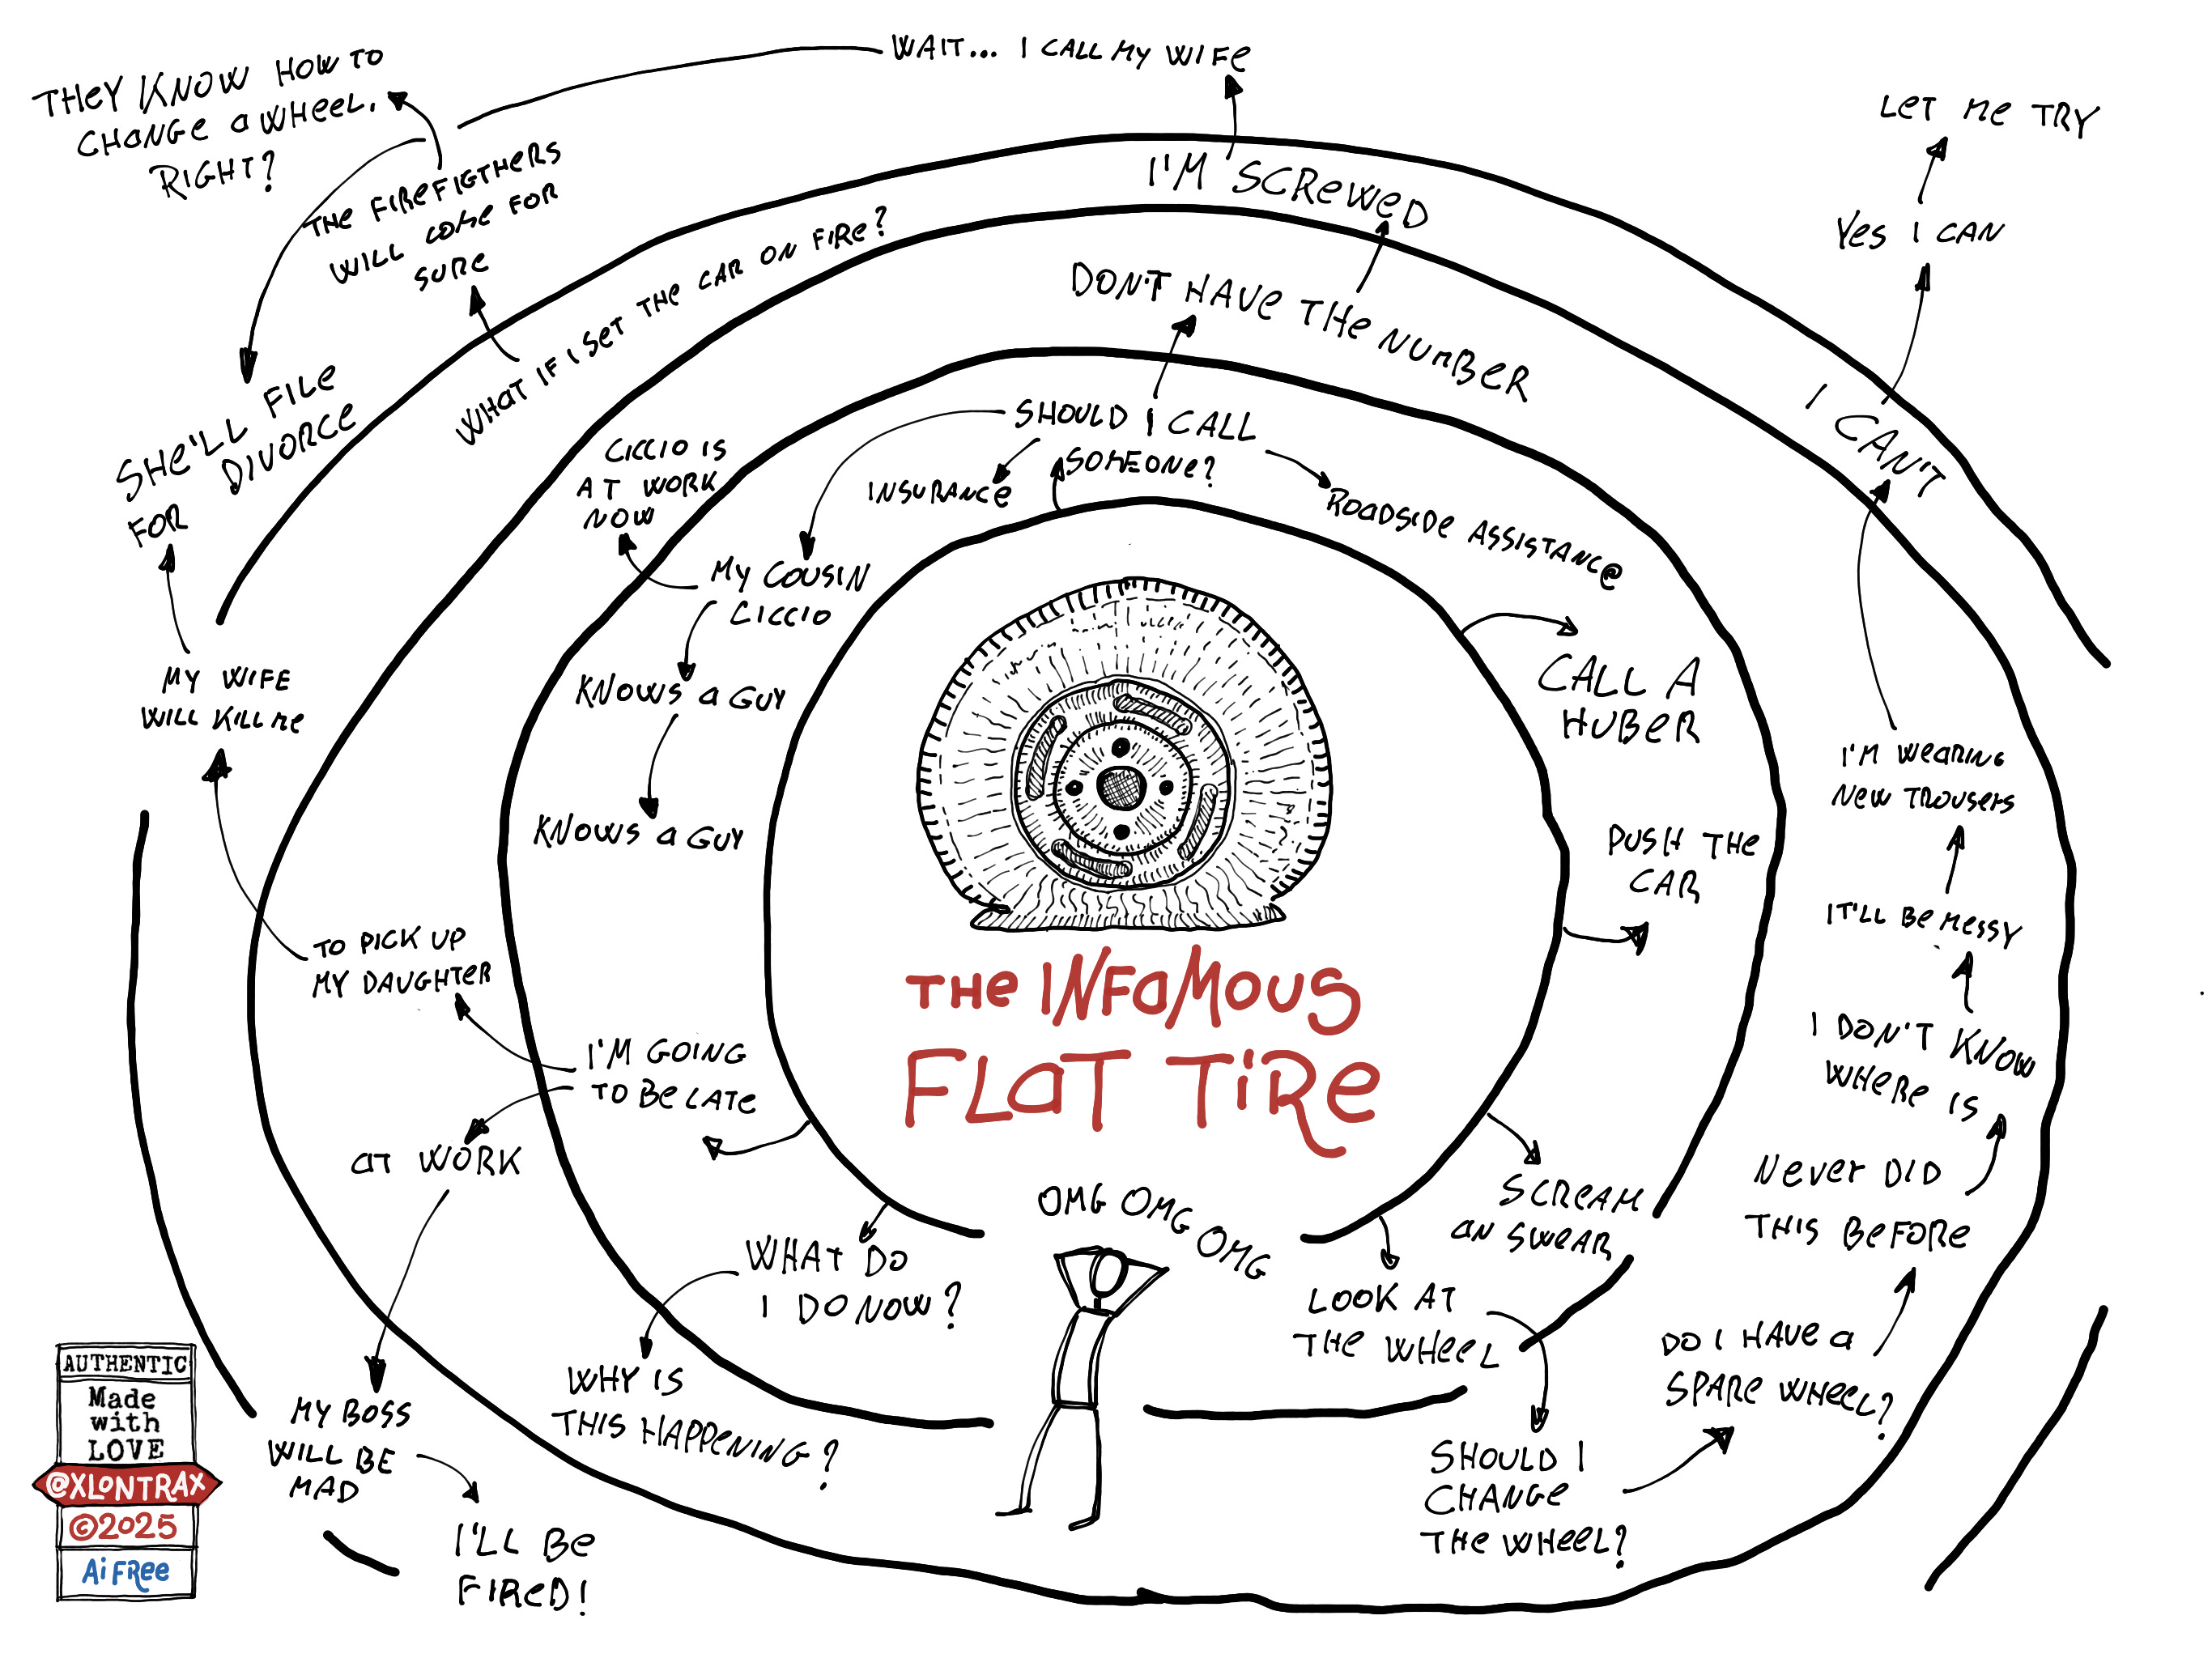 WAIT... I CALL MY WIFE
THEY KNOW HOW TO
CHANGE A WHEEL.
RIGHT?
THE FIREFIGTHERS
WILL COME FOR
SURE
WHAT IF I SET THE CAR ON FIRE?
SHE'LL FILE
FOR DIVORCE
MY WIFE
WILL KILL ME
TO PICK UP
MY DAUGHTER
I'M GOING
TO BE LATE
AT WORK
MY BOSS
WILL BE
MAD
I'LL BE
FIRED!
I'M SCREWED
DON'T HAVE THE NUMBER
SHOULD I CALL
SOMEONE?
INSURANCE
ROADSIDE ASSISTANCE
CICCIO IS
AT WORK
NOW
MY COUSIN
CICCIO
KNOWS A GUY
KNOWS A GUY
LET ME TRY
YES I CAN
I CAN'T
I'M WEARING
NEW TROUSERS
IT'LL BE MESSY
I DON'T KNOW
WHERE IS
NEVER DID
THIS BEFORE
DO I HAVE A
SPARE WHEEL?
SHOULD I
CHANGE
THE WHEEL?
CALL A
HUBER
PUSH THE
CAR
SCREAM
AN SWEAR
LOOK AT
THE WHEEL
THE INFAMOUS
FLAT TIRE
OMG OMG OMG
WHAT DO
I DO NOW?
WHY IS
THIS HAPPENING?
AUTHENTIC
Made
with
LOVE
@XLONTRAX
©2025
Ai FREE